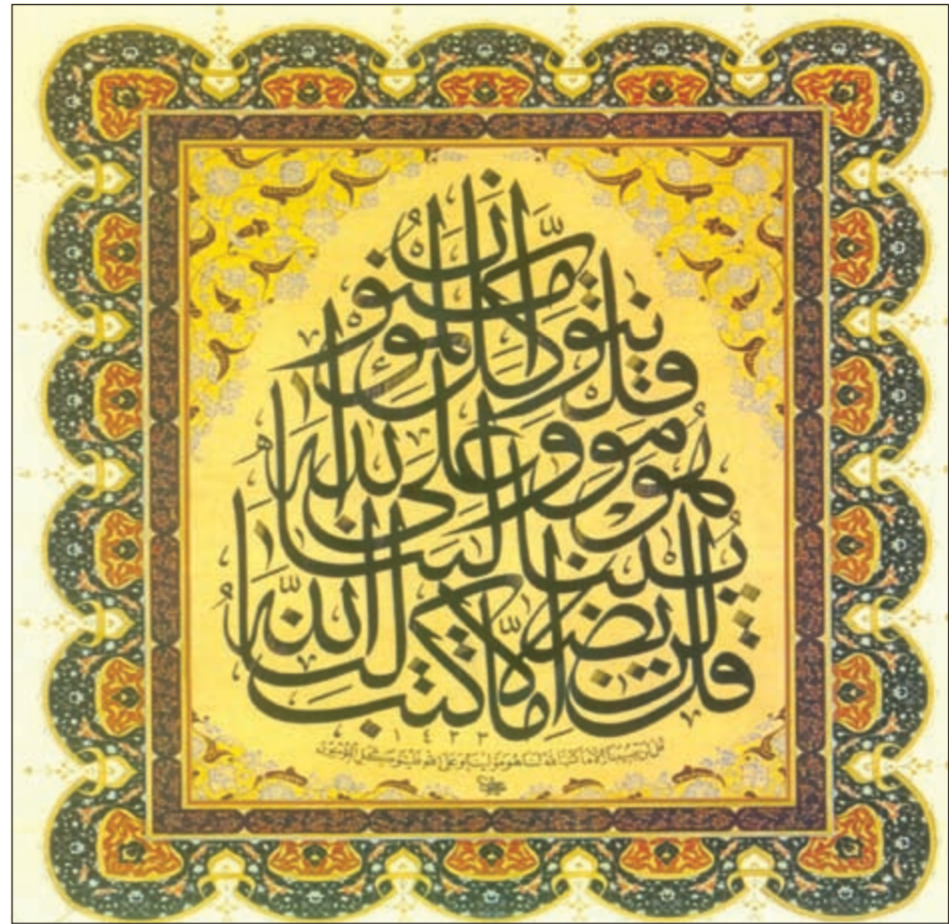 قل لن يصيبنا إلا ما كتب الله لنا هو مولينا وعلى الله فليتوكل المؤمنون
١٤٢٣
قل لن يصيبنا إلا ما كتب الله لنا هو مولينا وعلى الله فليتوكل المؤمنون